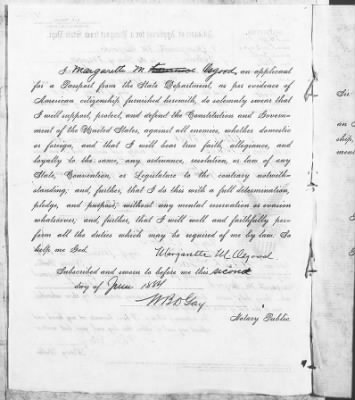 I Margarette M. Osgood, an applicant
for a Passport from the State Department, as per evidence of
American citizenship furnished herewith, do solemnly swear that
I will support, protect, and defend the Constitution and Govern-
ment of the United States, against all enemies, whether domestic
or foreign, and that I will bear true faith, allegiance, and
loyalty to the same, any ordinance, resolution, or law of any
State, Convention, or Legislature to the contrary notwith-
standing; and, further, that I do this with a full determination,
pledge, and purpose, without any mental reservation or evasion
whatsoever; and, further, that I will well and faithfully per-
form all the duties which may be required of me by law. So
help me God.
Margarette M. Osgood
Subscribed and sworn to before me this second
day of June 1884
W B D Gay
Notary Public